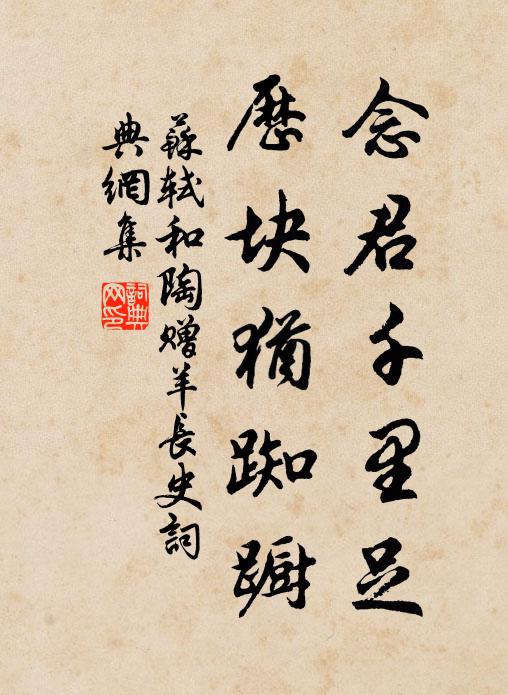 念君千里足
歷块猶踟蹰
蘇軾和陶贈羊長史詞
典網集
詞典
网印